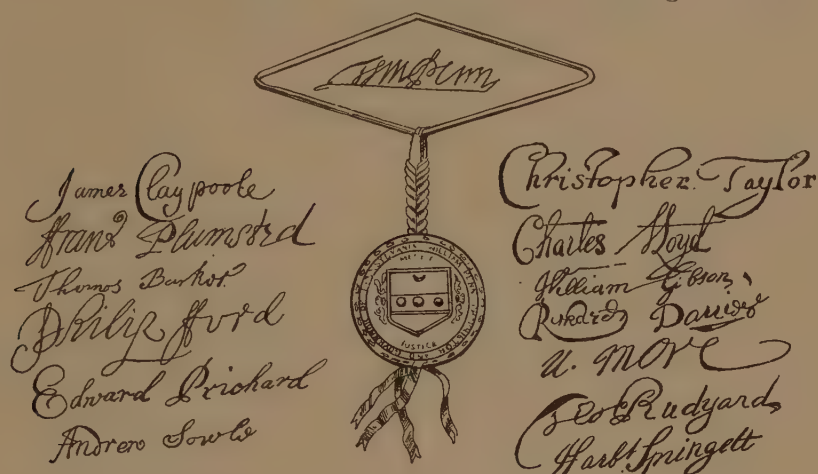 Wm Penn
James Claypoole
ffranˢ Plumsted
Thomas Barker
Philip fford
Edward Prichard
Andrew Sowle
MERCY
JUSTICE
Christopher Taylor
Charles Lloyd
William Gibson
Richard Davies
N. More
Geo Rudyard
Harbt Springett